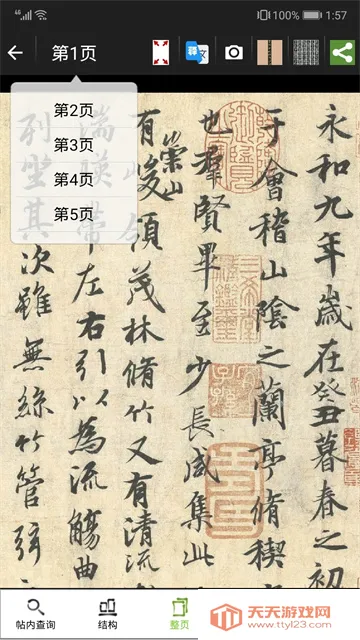 100% 1:57
第1页
第2页
第3页
第4页
第5页
永和九年歲在癸丑暮春之初
于會稽山陰之蘭亭脩禊
也羣賢畢至少長咸集此
有崇山峻領茂林脩竹又有清流
湍暎帶左右引以為流觴曲
列坐其次雖無絲竹管弦
帖内查询
结构
整页
天天游戏网
www.ttyl23.com